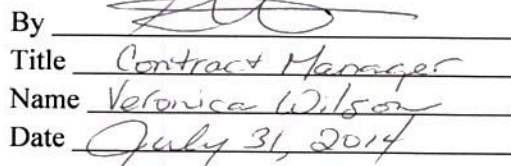 By
Title Contract Manager
Name Veronica Wilson
Date July 31, 2014